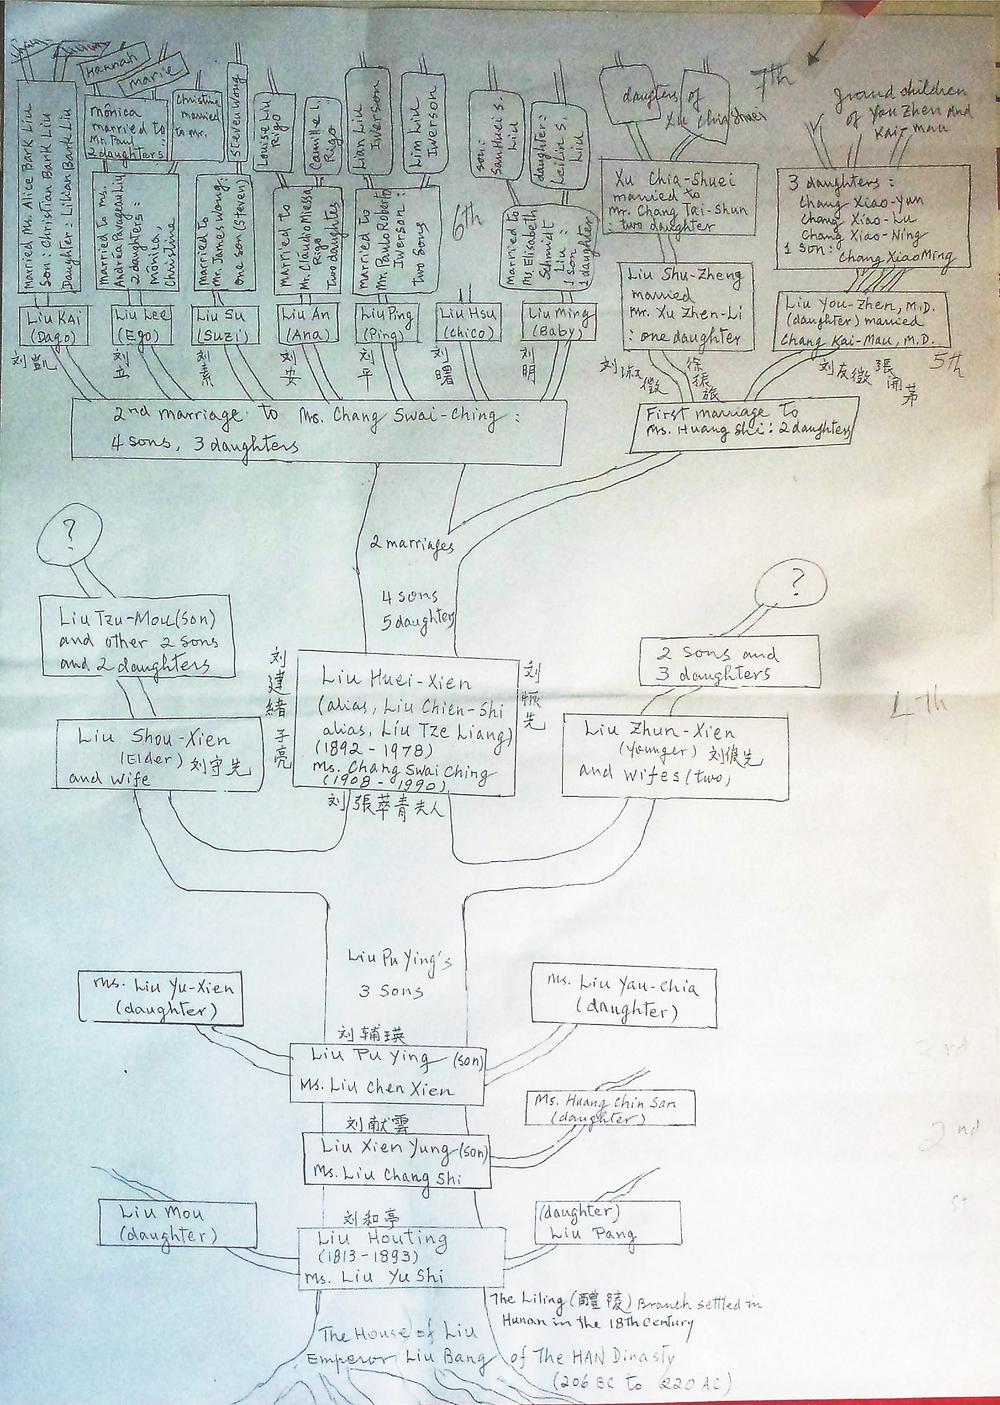 Hannah
Marie
7th
Grand children
of You Zhen and
Kai-Mau
Married Ms. Alice Bark Liu
Son: Christian Bark Liu
Daughter: LiLian Bark Liu
Mônica
married to
Mr. Paul
2 daughters
Christine
married
to Mr.
Steven Wong
Louise Liu
Rigo
Camille L.
Rigo
Lian Liu
Iwerson
Lim Liu
Iwerson
son:
San Huei S.
Liu
daughter:
LeiLin S.
Liu
daugters of
Xu Chia Shuei
Married to Ms.
Andréa Pavageau Liu
2 daughters:
Mônica,
Christine
Married to
Mr. James Wong:
one son (Steven)
Married to
Mr. Claudio Miessa
Rigo
Two daughtes
Married to
Mr. Paulo Roberto
Iwerson:
Two Sons
6th
Married to
Ms Elisabeth
Schmidt
Liu:
1 son
1 daughter
Xu Chia-Shuei
married to
Mr. Chang Tai-Shun
: two daughter
3 daughters:
Chang Xiao-Yun
Chang Xiao-Lu
Chang Xiao-Ning
1 son:
Chang XiaoMing
Liu Kai
(Dago)
Liu Lee
(Ego)
Liu Su
(Suzi)
Liu An
(Ana)
Liu Ping
(Ping)
Liu Hsu
(chico)
Liu Ming
(Baby)
Liu Shu-Zheng
married
Mr. Xu Zhen-Li
: one daughter
Liu You-Zhen, M.D.
(daughter) married
Chang Kai-Mau, M.D.
5th
刘凱
刘立
刘素
刘安
刘平
刘曙
刘明
刘淑徵
徐振旅
刘友徵
張開茅
2nd marriage to Ms. Chang Swai-Ching:
4 sons, 3 daughters
First marriage to
Ms. Huang Shi: 2 daughters
?
2 marriages
4 sons
5 daughters
?
Liu Tzu-Mou (son)
and other 2 sons
and 2 daughters
2 sons and
3 daughters
刘建緒 子亮
Liu Huei-Xien
(alias, Liu Chien-Shi
alias, Liu Tze Liang)
(1892-1978)
Ms. Chang Swai Ching
(1908-1990)
刘恢先
4th
Liu Shou-Xien
(Elder) 刘守先
and wife
Liu Zhun-Xien
(Younger) 刘俊先
and wifes (two)
刘張萃青夫人
Liu Pu Ying's
3 Sons
Ms. Liu Yu-Xien
(daughter)
Ms. Liu Yau-Chia
(daughter)
刘輔瑛
Liu Pu Ying (son)
Ms. Liu Chen Xien
3rd
Ms. Huang Chin San
(daughter)
刘献雲
Liu Xien Yung (son)
Ms. Liu Chang Shi
2nd
Liu Mou
(daughter)
(daughter)
Liu Pang
刘和亭
Liu Houting
(1813-1893)
Ms. Liu Yu Shi
The Liling (醴陵) Branch settled in
Hunan in the 18th Century
The House of Liu
Emperor Liu Bang of The HAN Dinasty
(206 BC to 220 AC)